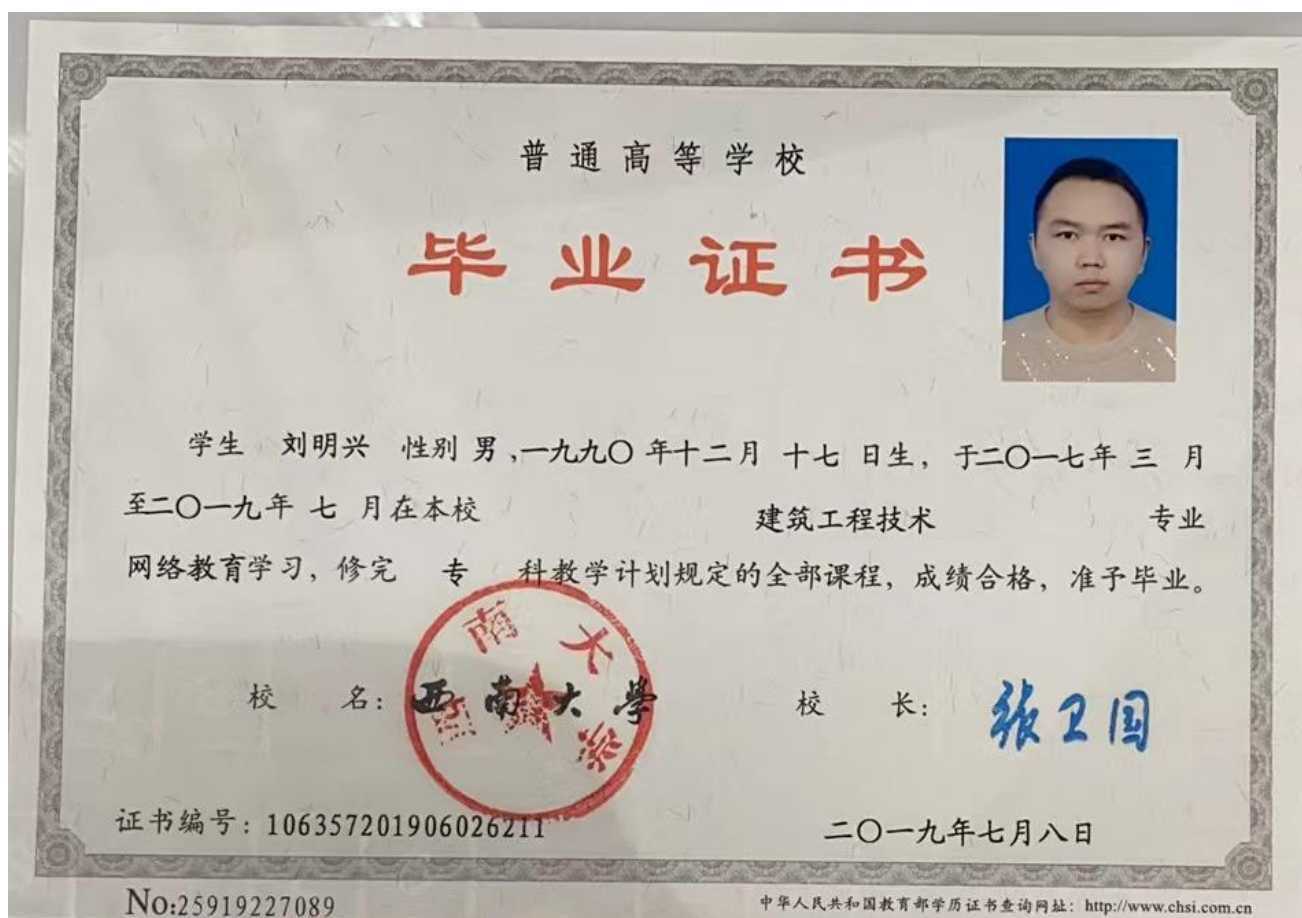 普通高等学校
毕业证书
学生 刘明兴 性别 男,一九九〇年十二月 十七 日生，于二〇一七年 三 月
至二〇一九年 七 月在本校 建筑工程技术 专业
网络教育学习，修完 专 科教学计划规定的全部课程，成绩合格，准予毕业。
校 名：西南大學 校 长：张卫国
西南大学
证书编号：106357201906026211 二〇一九年七月八日
No:25919227089 中华人民共和国教育部学历证书查询网址：http://www.chsi.com.cn